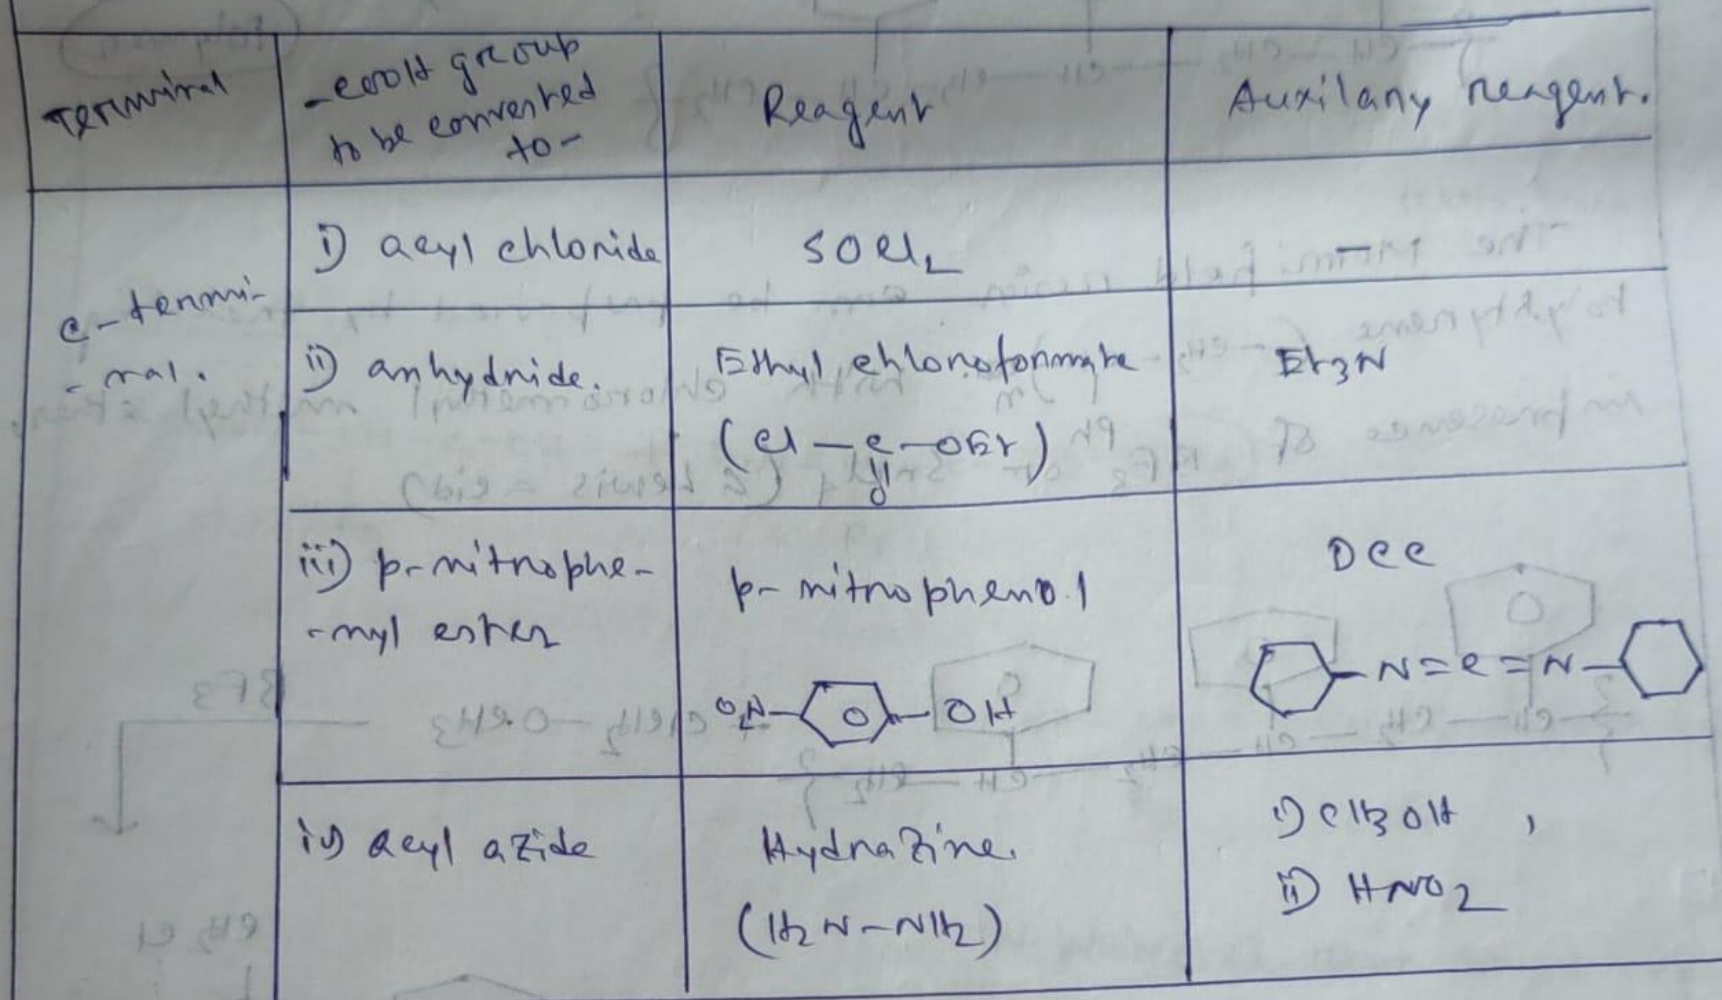 Terminal
-COOH group
to be converted
to-
Reagent
Auxilany reagent.
C-termi-
-nal.
i) acyl chloride
SOCl2
—
ii) anhydride.
Ethyl chloroformate
(Cl—C—OEt)
O
Et3N
iii) p-nitrophe-
-nyl ester
p-nitrophenol
O2N— —OH
DCC
—N=C=N—
iv) Acyl azide
Hydrazine.
(H2N-NH2)
i) CH3OH ,
ii) HNO2